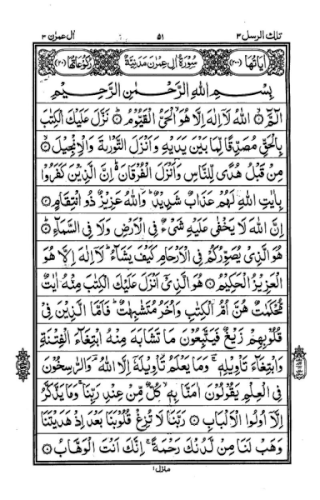 تلك الرسل ٣
٥١
ال عمرٰن ٣
اٰیاتها (٢٠٠)
سُوۡرَةُ اٰلِ عِمۡرٰنَ مَدَنِيَّةٌ
رُكُوۡعَاتُهَا (٢٠)
بِسۡمِ اللّٰهِ الرَّحۡمٰنِ الرَّحِيۡمِ
الٓمَّٓ ۙ‏ اللّٰهُ لَاۤ اِلٰهَ اِلَّا هُوَ الۡحَىُّ الۡقَيُّوۡمُؕ‏ نَزَّلَ عَلَيۡكَ الۡكِتٰبَ
بِالۡحَقِّ مُصَدِّقًا لِّمَا بَيۡنَ يَدَيۡهِ وَاَنۡزَلَ التَّوۡرٰٮةَ وَالۡاِنۡجِيۡلَۙ‏
مِنۡ قَبۡلُ هُدًى لِّلنَّاسِ وَاَنۡزَلَ الۡفُرۡقَانَ ؕ اِنَّ الَّذِيۡنَ كَفَرُوۡا
بِاٰيٰتِ اللّٰهِ لَهُمۡ عَذَابٌ شَدِيۡدٌ ؕ وَاللّٰهُ عَزِيۡزٌ ذُو انۡتِقَامٍؕ‏
اِنَّ اللّٰهَ لَا يَخۡفٰى عَلَيۡهِ شَىۡءٌ فِى الۡاَرۡضِ وَلَا فِى السَّمَآءِؕ‏
هُوَ الَّذِىۡ يُصَوِّرُكُمۡ فِى الۡاَرۡحَامِ كَيۡفَ يَشَآءُ ؕ لَاۤ اِلٰهَ اِلَّا هُوَ
الۡعَزِيۡزُ الۡحَكِيۡمُ‏ هُوَ الَّذِىۡۤ اَنۡزَلَ عَلَيۡكَ الۡكِتٰبَ مِنۡهُ اٰيٰتٌ
مُّحۡكَمٰتٌ هُنَّ اُمُّ الۡكِتٰبِ وَاُخَرُ مُتَشٰبِهٰتٌ ؕ فَاَمَّا الَّذِيۡنَ فِىۡ
قُلُوۡبِهِمۡ زَيۡغٌ فَيَتَّبِعُوۡنَ مَا تَشَابَهَ مِنۡهُ ابۡتِغَآءَ الۡفِتۡنَةِ
وَابۡتِغَآءَ تَاۡوِيۡلِهٖۚ وَمَا يَعۡلَمُ تَاۡوِيۡلَهٗۤ اِلَّا اللّٰهُ ۘ وَ الرّٰسِخُوۡنَ
فِى الۡعِلۡمِ يَقُوۡلُوۡنَ اٰمَنَّا بِهٖۙ كُلٌّ مِّنۡ عِنۡدِ رَبِّنَا ۚ وَمَا يَذَّكَّرُ
اِلَّاۤ اُولُوا الۡاَلۡبَابِ‏ رَبَّنَا لَا تُزِغۡ قُلُوۡبَنَا بَعۡدَ اِذۡ هَدَيۡتَنَا
وَهَبۡ لَنَا مِنۡ لَّدُنۡكَ رَحۡمَةً ۚ اِنَّكَ اَنۡتَ الۡوَهَّابُ‏
منزل ١